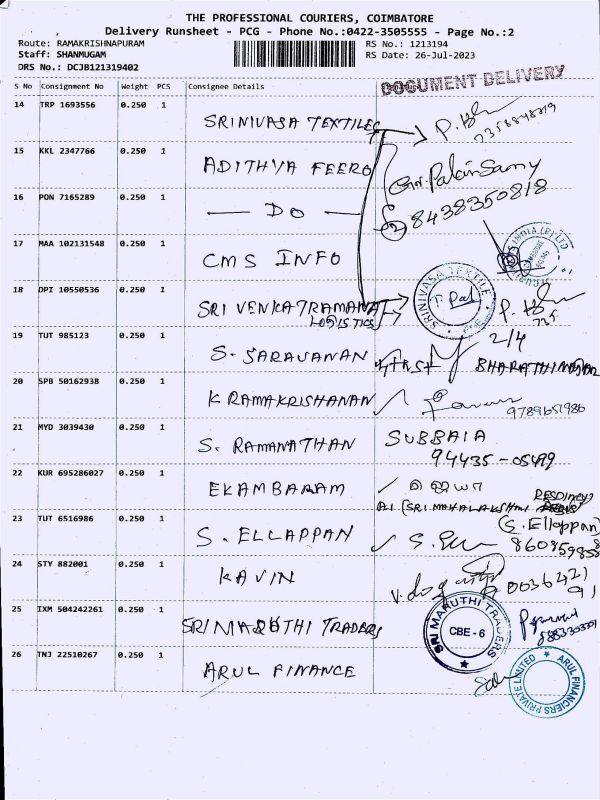 THE PROFESSIONAL COURIERS, COIMBATORE
Delivery Runsheet - PCG - Phone No.:0422-3505555 - Page No.:2
Route: RAMAKRISHNAPURAM RS No.: 1213194
Staff: SHANMUGAM RS Date: 26-Jul-2023
DRS No.: DCJB121319402
DOCUMENT DELIVERY
S No Consignment No Weight PCS Consignee Details
14 TRP 1693556 0.250 1 SRINIVASA TEXTILES
15 KKL 2347766 0.250 1 ADITHYA FEERO
16 PON 7165289 0.250 1 — DO — 8438350818
17 MAA 102131548 0.250 1 CMS INFO
18 DPI 10550536 0.250 1 SRI VENKATRAMANA LOGISTICS SRINIVASA TEXTILE
19 TUT 985123 0.250 1 S. SARAVANAN 2/4 BHARATHI
20 SPB 50162938 0.250 1 K RAMAKRISHANAN 9789651986
21 MYD 3039430 0.250 1 S. RAMANATHAN SUBBAIA
94435-05499
22 KUR 695286027 0.250 1 EKAMBARAM
(SRI MAHALAKSHMI
23 TUT 6516986 0.250 1 S. ELLAPPAN (S. Ellappan)
24 STY 882001 0.250 1 KAVIN
25 IXM 504242261 0.250 1 SRI MARUTHI TRADERS SRI MARUTHI TRADERS CBE - 6
26 TNJ 22510267 0.250 1 ARUL FINANCE ARUL FINANCIERS PRIVATE LIMITED